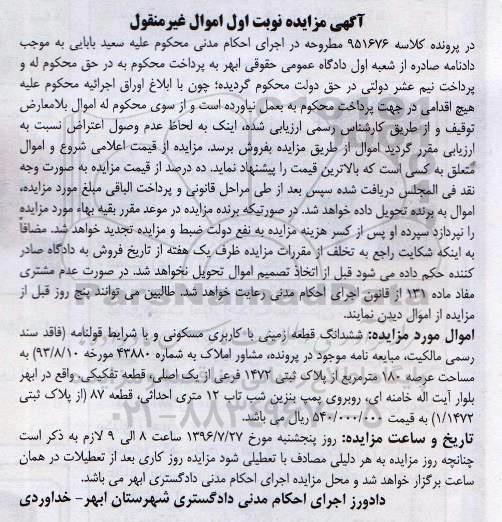 آگهی مزایده نوبت اول اموال غیرمنقول
در پرونده کلاسه ۹۵۱۶۷۶ مطروحه در اجرای احکام مدنی محکوم علیه سعید بابایی به موجب
دادنامه صادره از شعبه اول دادگاه عمومی حقوقی ابهر به پرداخت محکوم به در حق محکوم له و
پرداخت نیم عشر دولتی در حق دولت محکوم گردیده؛ چون با ابلاغ اوراق اجرائیه محکوم علیه
هیچ اقدامی در جهت پرداخت محکوم به بعمل نیاورده است و از سوی محکوم له اموال بلامعارض
توقیف و از طریق کارشناس رسمی ارزیابی شده، اینک به لحاظ عدم وصول اعتراض نسبت به
ارزیابی مقرر گردید اموال از طریق مزایده بفروش برسد. مزایده از قیمت اعلامی شروع و اموال
متعلق به کسی است که بالاترین قیمت را پیشنهاد نماید. ده درصد از قیمت مزایده به صورت وجه
نقد فی المجلس دریافت شده سپس بعد از طی مراحل قانونی و پرداخت الباقی مبلغ مورد مزایده،
اموال به برنده تحویل داده خواهد شد. در صورتیکه برنده مزایده در موعد مقرر بقیه بهاء مورد مزایده
را نپردازد سپرده او پس از کسر هزینه مزایده به نفع دولت ضبط و مزایده تجدید خواهد شد. مضافاً
به اینکه شکایت راجع به تخلف از مقررات مزایده ظرف یک هفته از تاریخ فروش به دادگاه صادر
کننده حکم داده می شود قبل از اتخاذ تصمیم اموال تحویل نخواهد شد. در صورت عدم مشتری
مفاد ماده ۱۳۱ از قانون اجرای احکام مدنی رعایت خواهد شد. طالبین می توانند پنج روز قبل از
مزایده از اموال دیدن نمایند.
اموال مورد مزایده: ششدانگ قطعه زمینی با کاربری مسکونی و با شرایط قولنامه (فاقد سند
رسمی مالکیت، مبایعه نامه موجود در پرونده، مشاور املاک به شماره ۴۳۸۸۰ مورخه ۹۳/۸/۱۰) به
مساحت عرصه ۱۸۰ مترمربع از پلاک ثبتی ۱۴۷۲ فرعی از یک اصلی، قطعه تفکیکی واقع در ابهر
بلوار آیت اله خامنه ای، روبروی پمپ بنزین شب تاب ۱۲ متری احداثی، قطعه ۸۷ (از پلاک ثبتی
۱/۱۴۷۲) به قیمت ۵۴۰/۰۰۰/۰۰۰ ریال می باشد.
تاریخ و ساعت مزایده: روز پنجشنبه مورخ ۱۳۹۶/۷/۲۷ ساعت ۸ الی ۹ لازم به ذکر است
چنانچه روز مزایده به هر دلیلی مصادف با تعطیلی شود مزایده روز کاری بعد از تعطیلات در همان
ساعت برگزار خواهد شد و محل مزایده اجرای احکام مدنی دادگستری ابهر می باشد.
دادورز اجرای احکام مدنی دادگستری شهرستان ابهر- خداوردی